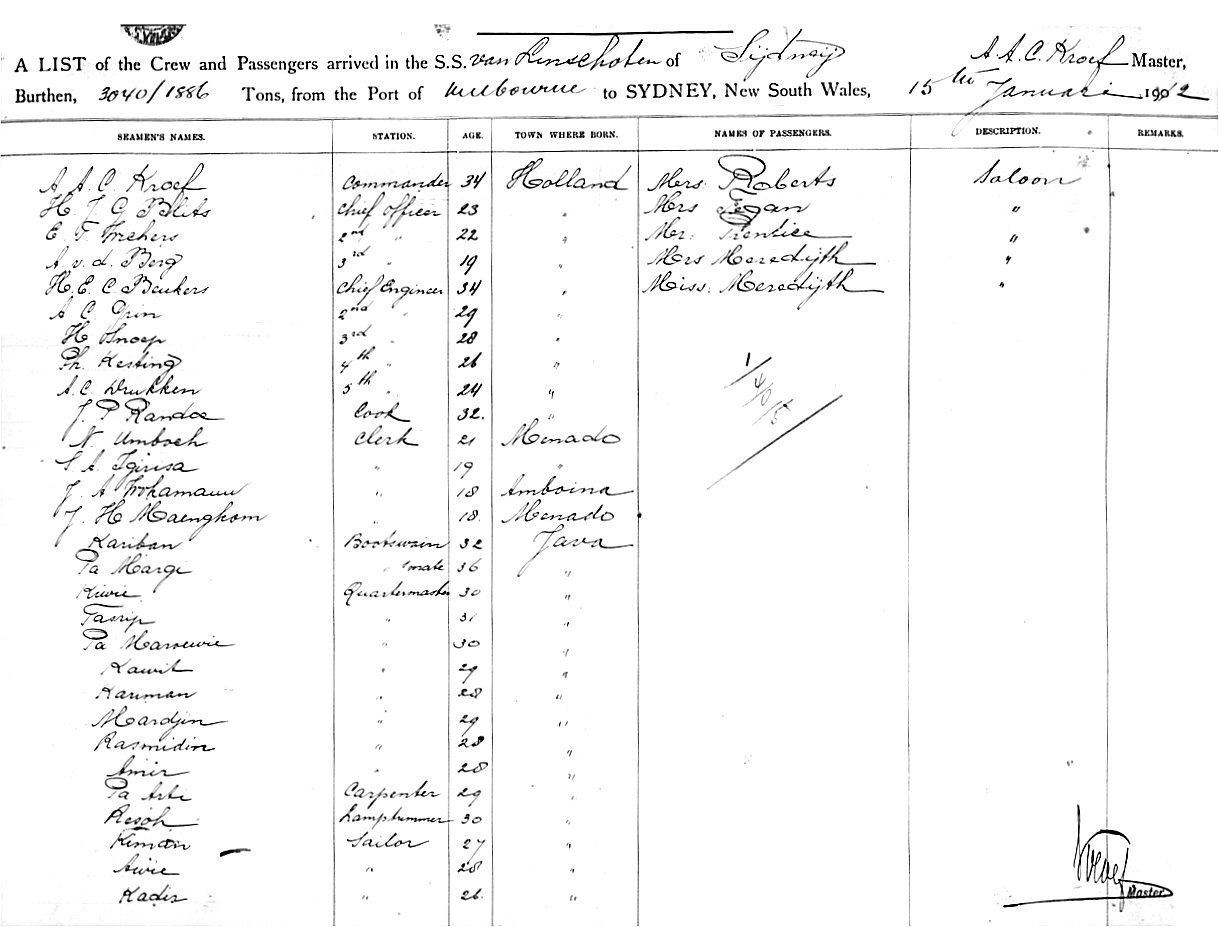 A LIST of the Crew and Passengers arrived in the S.S. van Linschoten of Sijdneij A. A. C. Kroef Master,
Burthen, 3040/1886 Tons, from the Port of Melbourne to SYDNEY, New South Wales, 15th Januari 1912
SEAMEN'S NAMES. STATION. AGE. TOWN WHERE BORN. NAMES OF PASSENGERS. DESCRIPTION. REMARKS.
A. A. C. Kroef Commander 34 Holland Mrs. Roberts Saloon
H. J. G. Blits Chief Officer 23 " Mrs Fegan "
E. T. 2nd " 22 " Mr. Prentice "
A. v. d. Berg 3rd " 19 " Mrs Meredijth "
H. E. C. Beukers Chief Engineer 34 " Miss. Meredijth "
A. C. Grin 2nd " 29 "
H. Snoep 3rd " 28 "
Ph. Kesting 4th " 26 "
A. C. Drukken 5th " 24 "
J. P. Randoe Cook 32. "
N. Umboh Clerk 21 Menado
S. A. " 19 "
J. A. " 18 Amboina
J. H. Maengkom " 18. Menado
Kariban Bootswain 32 Java
Pa Margi " mate 36 "
Kiwie Quartermaster 30 "
Tasrip " 31 "
Pa Marsewie " 30 "
Kawit " 29 "
Kariman " 28 "
Mardjin " 29 "
Rasmidin " 28 "
Amir " 28 "
Pa Arti Carpenter 29 "
Resoh Lamptrimmer 30 "
Kiman Sailor 27 "
Awie " 28 "
Kadir " 26. "
Kroef
Master